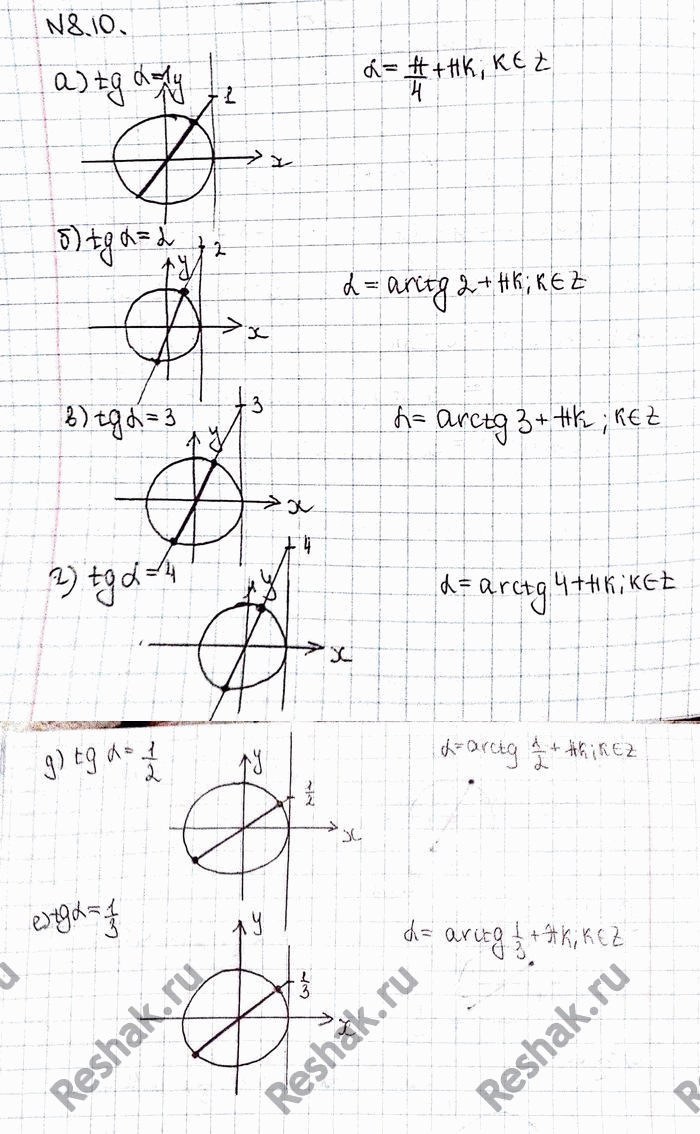 N8.10.
а) tg α=1 y 1 x α = π/4 + πk, k∈Z
б) tg α = 2 2 y x α = arctg 2 + πk; k∈Z
в) tg α = 3 3 y x α = arctg 3 + πk; k∈Z
г) tg α = 4 4 y x α = arctg 4 + πk; k∈Z
д) tg α = 1/2 y 1/2 x α = arctg 1/2 + πk; k∈Z
е) tg α = 1/3 y 1/3 x α = arctg 1/3 + πk, k∈Z
Reshak.ru Reshak.ru Reshak.ru